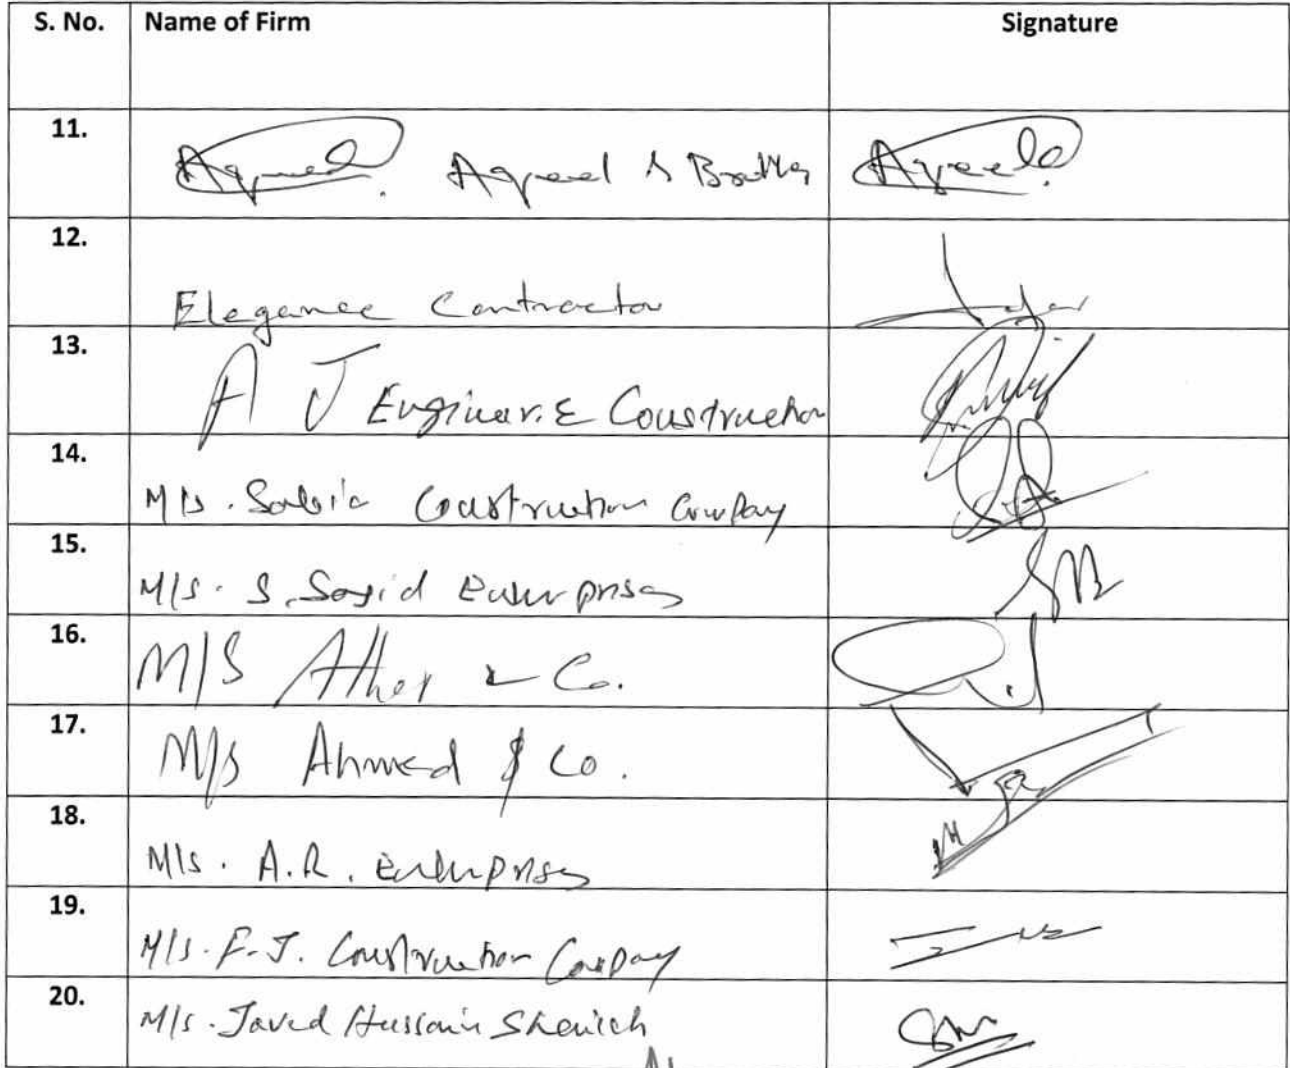 S. No. Name of Firm Signature
11. Aqeel & Brothers Aqeel
12. Elegance Contractor
13. A J Engineer. & Construction
14. M/s. Sabia Construction Company
15. M/s. S. Sajid Enterprises
16. M/S Ather & Co.
17. M/s Ahmed & Co.
18. M/s. A.R. Enterprises
19. M/s. F.J. Construction Company
20. M/s. Javed Hussain Sheikh